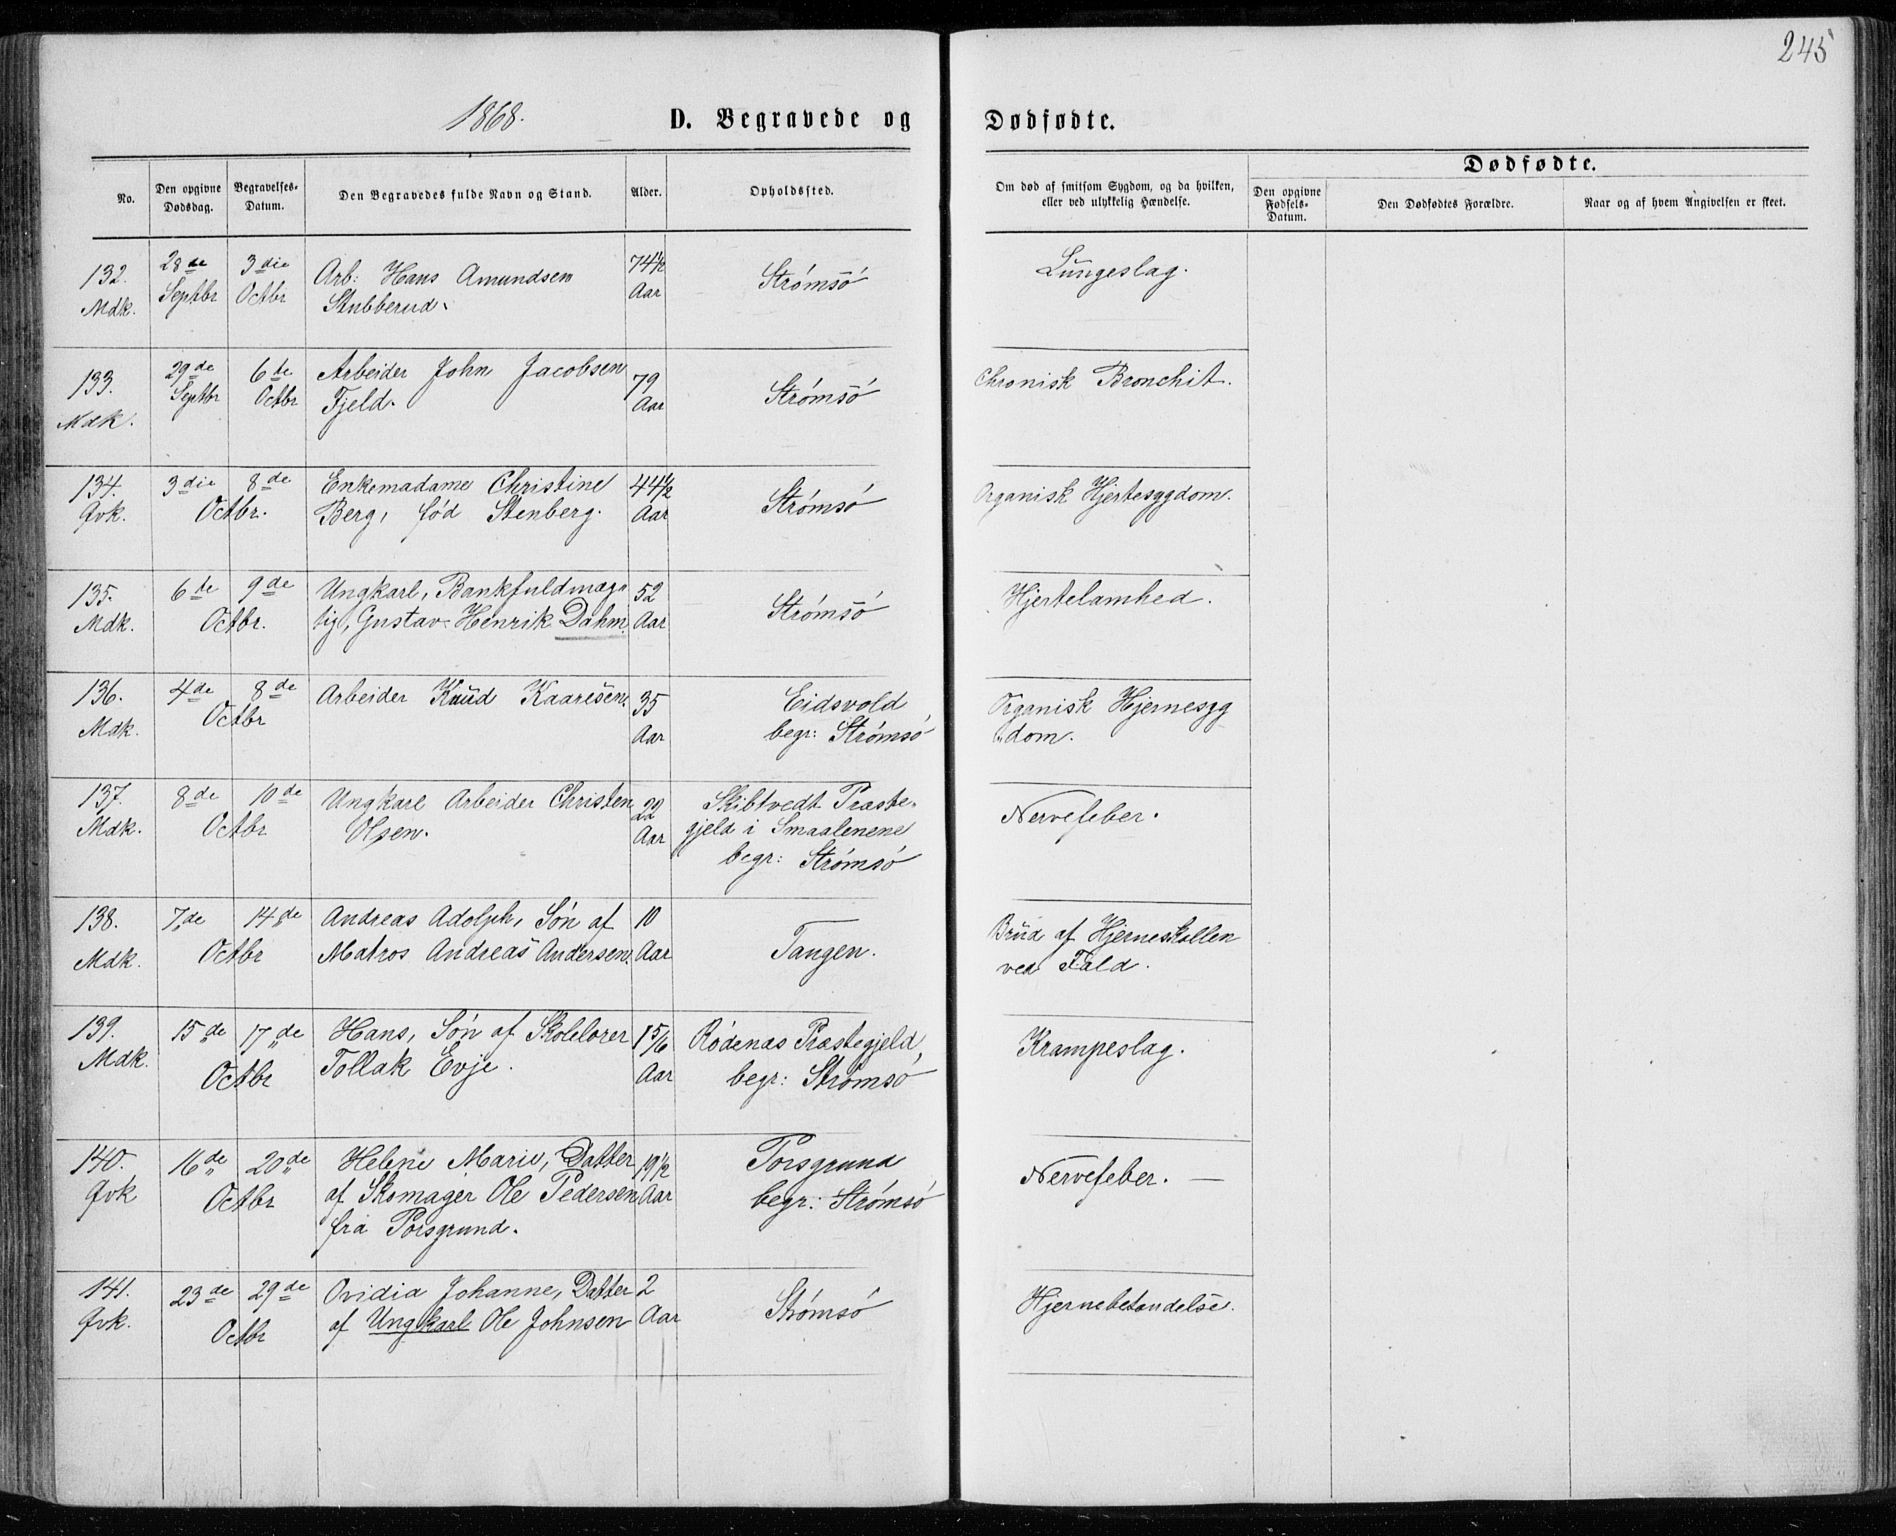 245
1868.
D. Begravede og Dødfødte.
Dødfødte.
No.
Den opgivne Dødsdag.
Begravelses-Datum.
Den Begravedes fulde Navn og Stand.
Alder.
Opholdssted.
Om død af smitsom Sygdom, og da hvilken,
eller ved ulykkelig Hændelse.
Den opgivne Fødsels-Datum.
Den Dødfødtes Forældre.
Naar og af hvem Angivelsen er skeet.
132. 28de 3die Arb: Hans Amundsen 74½ Strømsö Lungeslag.
Mdk. Septbr Octbr Stubberud. Aar
133. 29de 6te Arbeider John Jacobsen 79 Strømsö Chronisk Bronchit.
Mdk. Septbr Octbr Fjeld. Aar
134. 3die 8de Enkemadame Christine 44½ Strømsö Organisk Hjertesygdom.
Qvk. Octbr. Berg, föd Stenberg. Aar
135. 6te 9de Ungkarl, Bankfuldmæg- 52 Strømsö Hjertelamhed.
Mdk. Octbr. tig, Gustav Henrik Dahm. Aar
136. 4de 8de Arbeider Knud Kaaresen. 35 Eidsvold Organisk Hjernesyg
Mdk. Octbr Aar begr: Strømsö "dom.
137. 8de 10de Ungkarl Arbeider Christen 22 Skibtvedt Præste-
Mdk. Octbr Olsen. Aar gjeld i Smaalenene Nervefeber.
begr: Strømsö
138. 7de 14de Andreas Adolph, Sön af 10 — Brud af Hjerneskallen
Mdk. Octbr Matros Andreas Andersen. Aar Tangen. ved Fald.
139. 15de 17de Hans, Sön af Skolelærer 1 5/6 Rödenæs Præstegjeld, Krampeslag.
Mdk. Octbr Tollak Evje. Aar begr: Strømsö
140. 16de 20de Helene Marie, Datter 19½ Porsgrund
Qvk Octbr af Skomager Ole Pedersen Aar begr: Strømsö Nervefeber. —
fra Porsgrund.
141. 23de 29de Ovidia Johanne, Datter 2 Strømsö Hjernebetændelse.
Qvk. Octbr af Ungkarl Ole Johnsen Aar